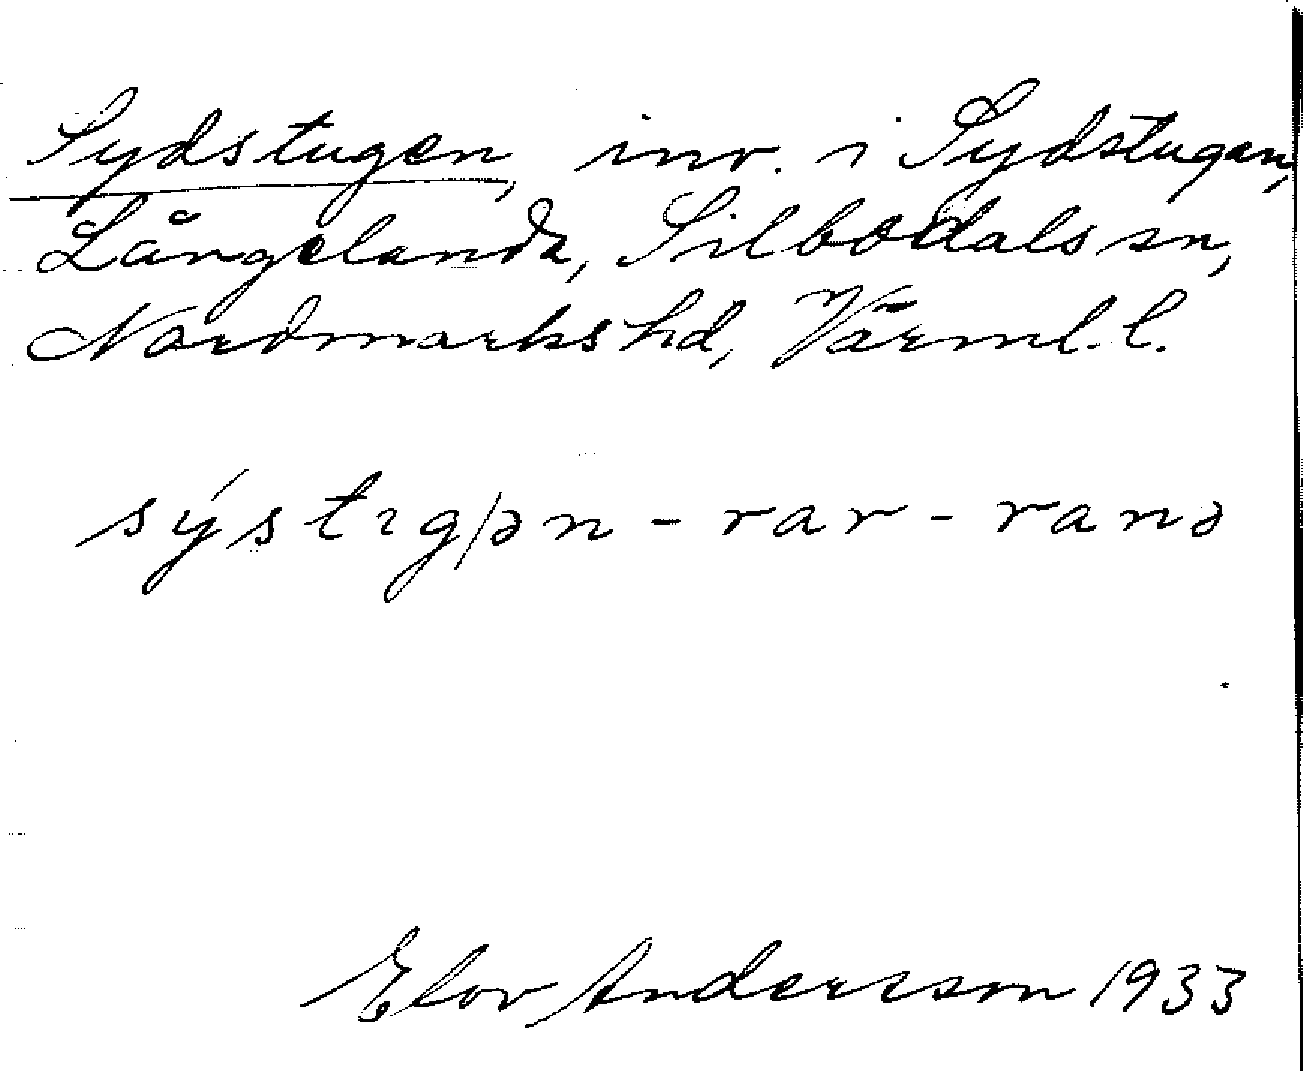 Sydstugen, inv. i Sydstugan,
Långelanda, Silbodals sn,
Nordmarks hd, Värml. l.
sýstıg/ən - rar - ranə
Elov Andersson 1933